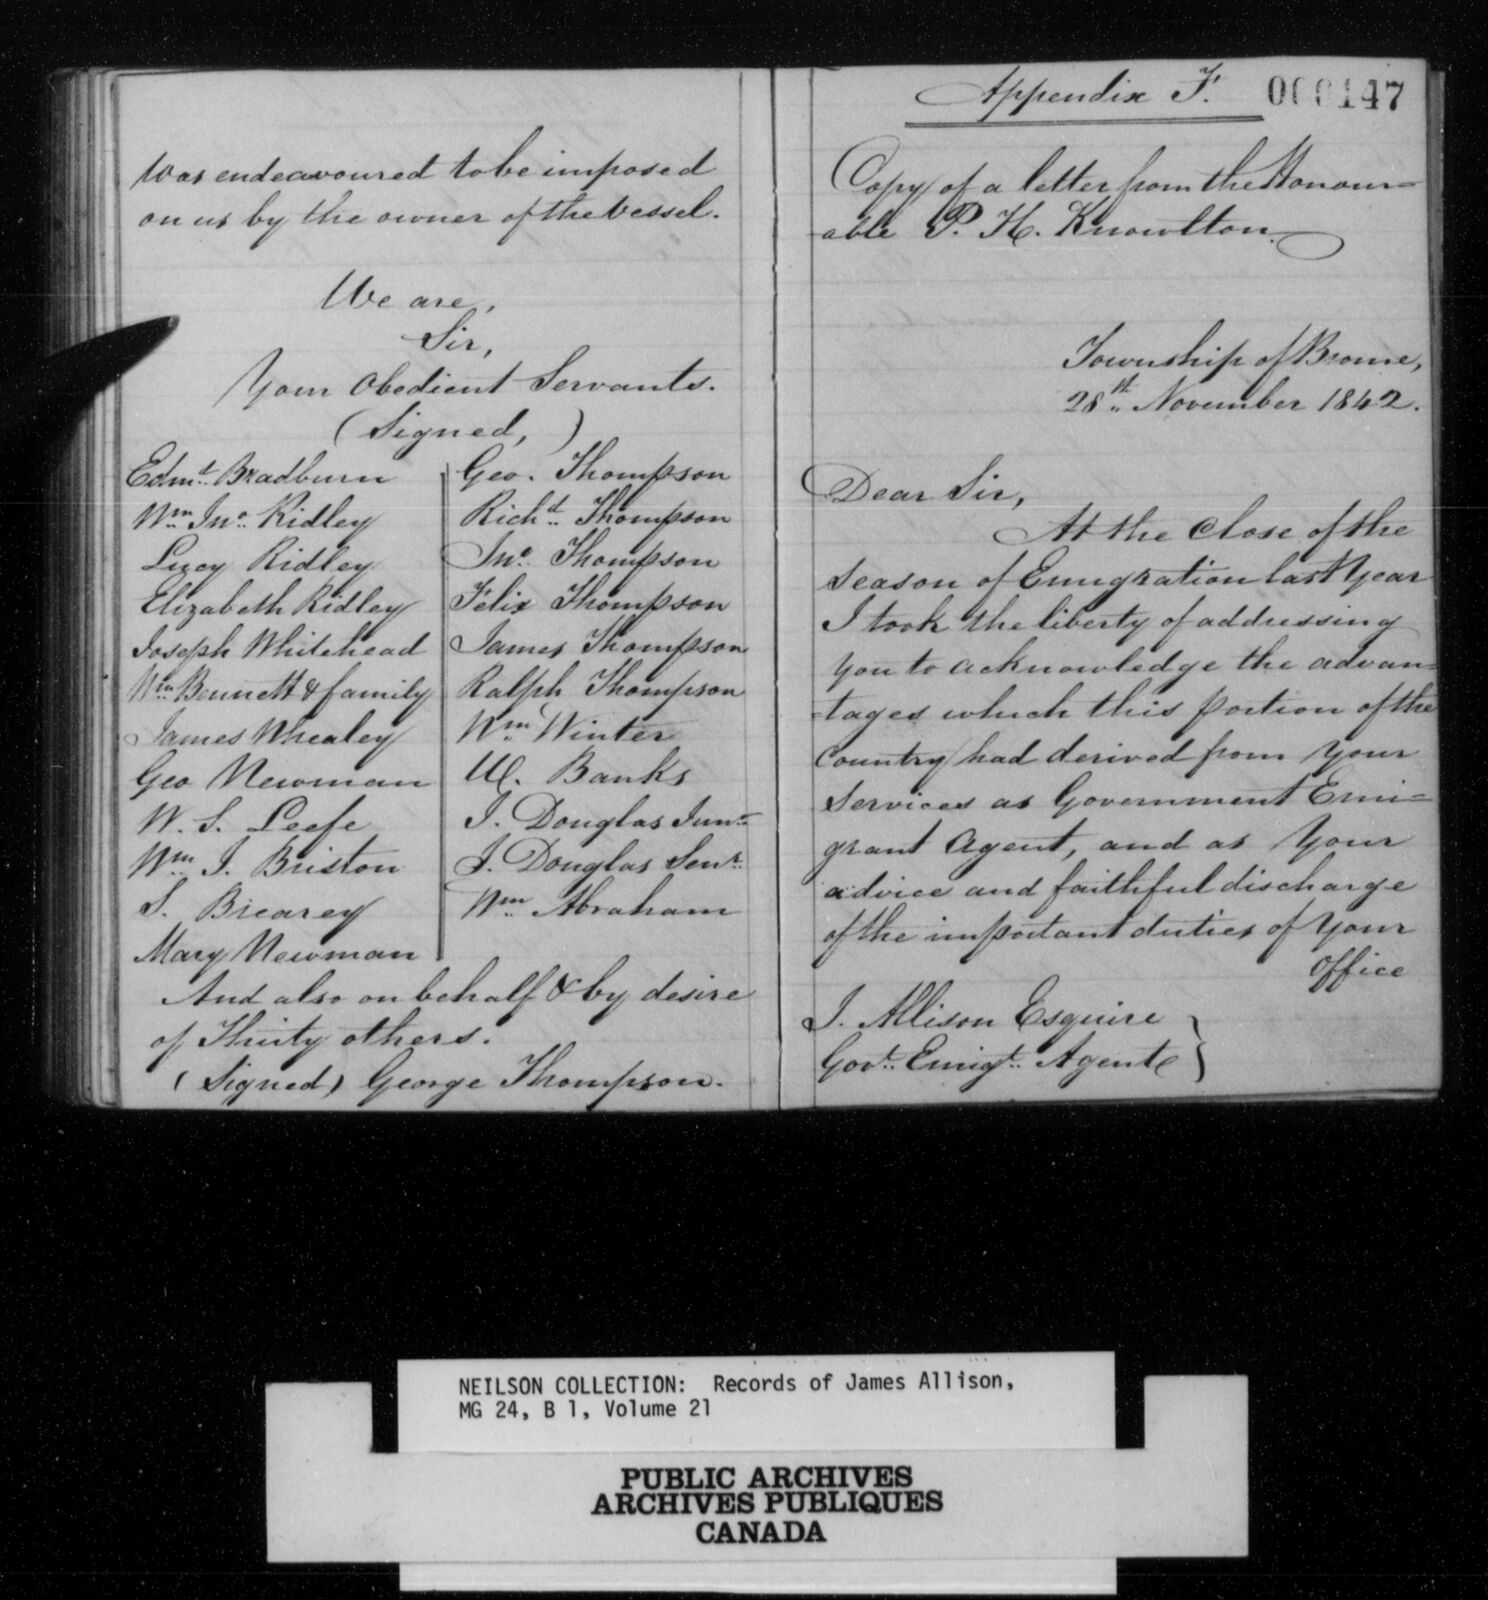 was endeavoured to be imposed
on us by the owner of the vessel.
We are,
Sir,
Your Obedient Servants.
(Signed,)
Edmt. Bradburn
Wm. Jno. Ridley
Lizey Ridley
Elizabeth Ridley
Joseph Whitehead
Wm. Bennett & family
James Whealey
Geo Newman
W. S. Leefe
Wm. J. Briston
S. Brearey
Mary Newman
Geo. Thompson
Richd. Thompson
Jno. Thompson
Felix Thompson
James Thompson
Ralph Thompson
Wm. Winter
W. Banks
J. Douglas Junr.
J. Douglas Senr.
Wm. Abraham
And also on behalf & by desire
of Thirty others.
(Signed) George Thompson.
Appendix F. 000147
Copy of a letter from the Honour=
able P. H. Knowlton.
Township of Brome,
28th. November 1842.
Dear Sir,
At the close of the
season of Emigration last Year
I took the liberty of addressing
you to acknowledge the advan=
=tages which this portion of the
Country had derived from your
services as Government Emi=
grant Agent, and as Your
advice and faithful discharge
of the important duties of Your
Office
J. Allison Esquire
Govt. Emigt. Agent
NEILSON COLLECTION: Records of James Allison,
MG 24, B 1, Volume 21
PUBLIC ARCHIVES
ARCHIVES PUBLIQUES
CANADA